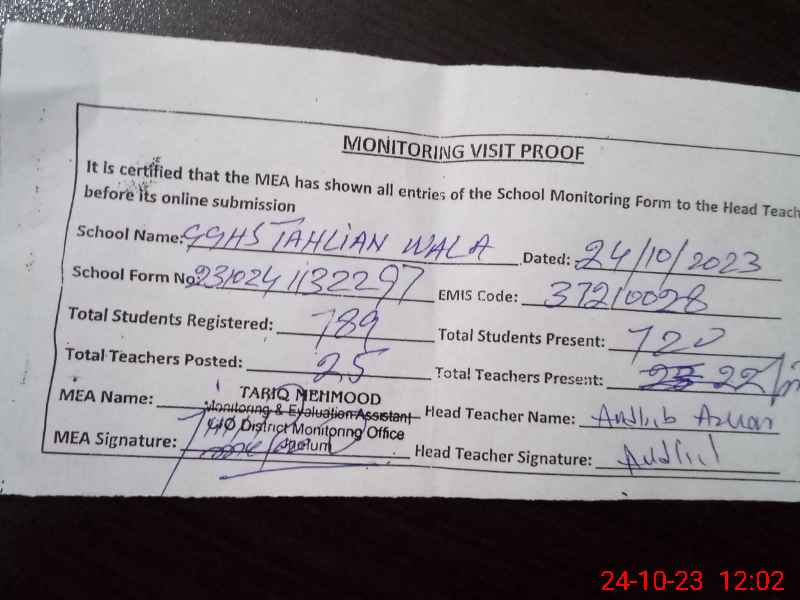 MONITORING VISIT PROOF
It is certified that the MEA has shown all entries of the School Monitoring Form to the Head Teach
before its online submission
School Name: GGHS TAHLIAN WALA Dated: 24/10/2023
School Form No: 231024 1132297 EMIS Code: 37210028
Total Students Registered: 789 Total Students Present: 720
Total Teachers Posted: 25 Total Teachers Present: 22
MEA Name: TARIQ MEHMOOD Head Teacher Name:
Monitoring & Evaluation Assistant
O/O District Monitoring Office
Jhelum
MEA Signature: Head Teacher Signature:
24-10-23 12:02